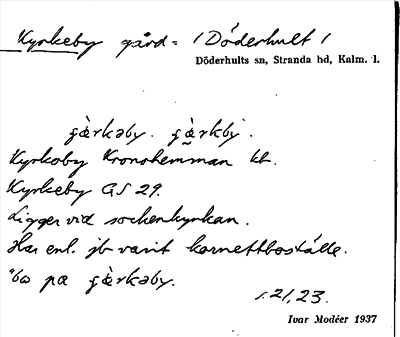 Kyrkeby gård = / Döderhult /
Döderhults sn, Stranda hd, Kalm. l.
Kyrkoby Kronohemman kt.
Kyrkeby GS 29.
Ligger vid sockenkyrkan.
Har enl. jb varit kornettboställe.
"bo pa
s. 21, 23.
Ivar Modéer 1937